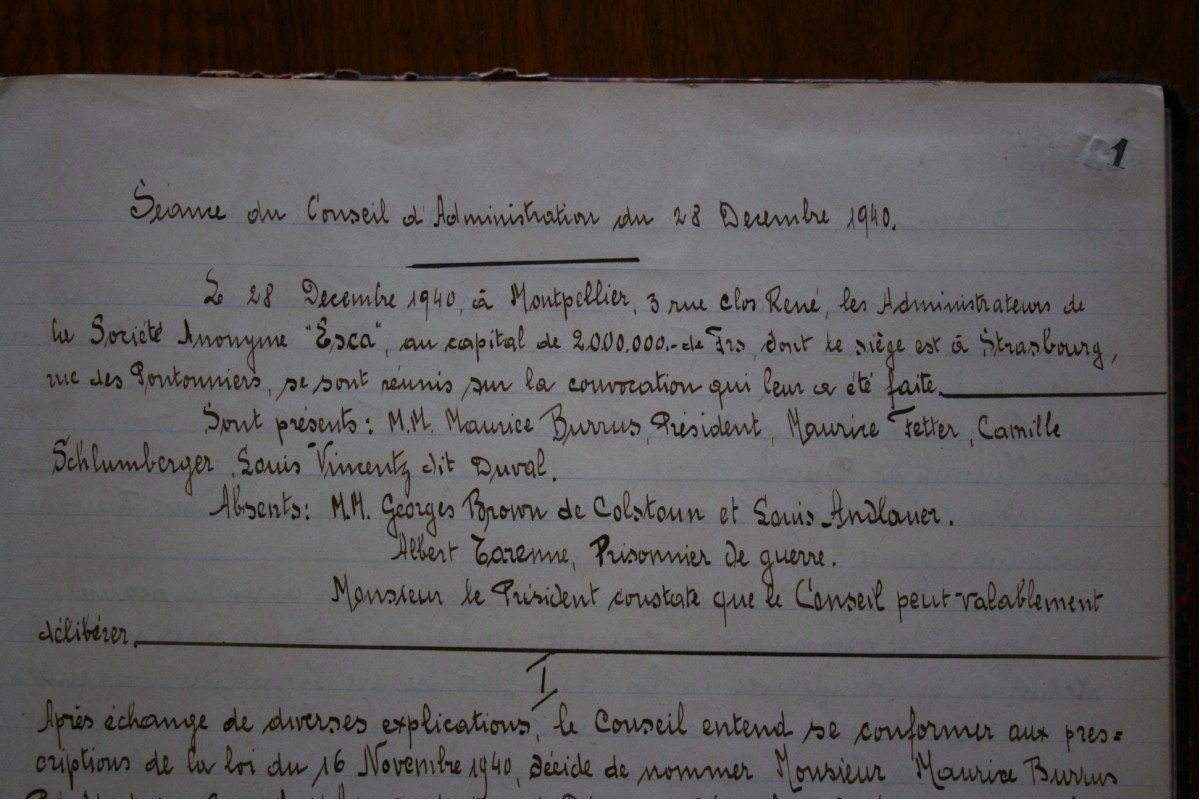 1
Séance du Conseil d'Administration du 28 Decembre 1940.
Le 28 Decembre 1940, à Montpellier, 3 rue Clos René, les Administrateurs de
la Société Anonyme "Esca", au capital de 2.000.000.- de Frs, dont le siège est à Strasbourg,
rue des Pontonniers, se sont réunis sur la convocation qui leur a été faite.
Sont présents: M.M. Maurice Burrus, Président, Maurice Fetter, Camille
Schlumberger, Louis Vincentz dit Duval.
Absents: M.M. Georges Brown de Colstoun et Louis Andlauer.
Albert Tarenne, Prisonnier de guerre.
Monsieur le Président constate que le Conseil peut valablement
délibérer.
I
Après échange de diverses explications, le Conseil entend se conformer aux pres=
criptions de la loi du 16 Novembre 1940, décide de nommer Monsieur Maurice Burrus